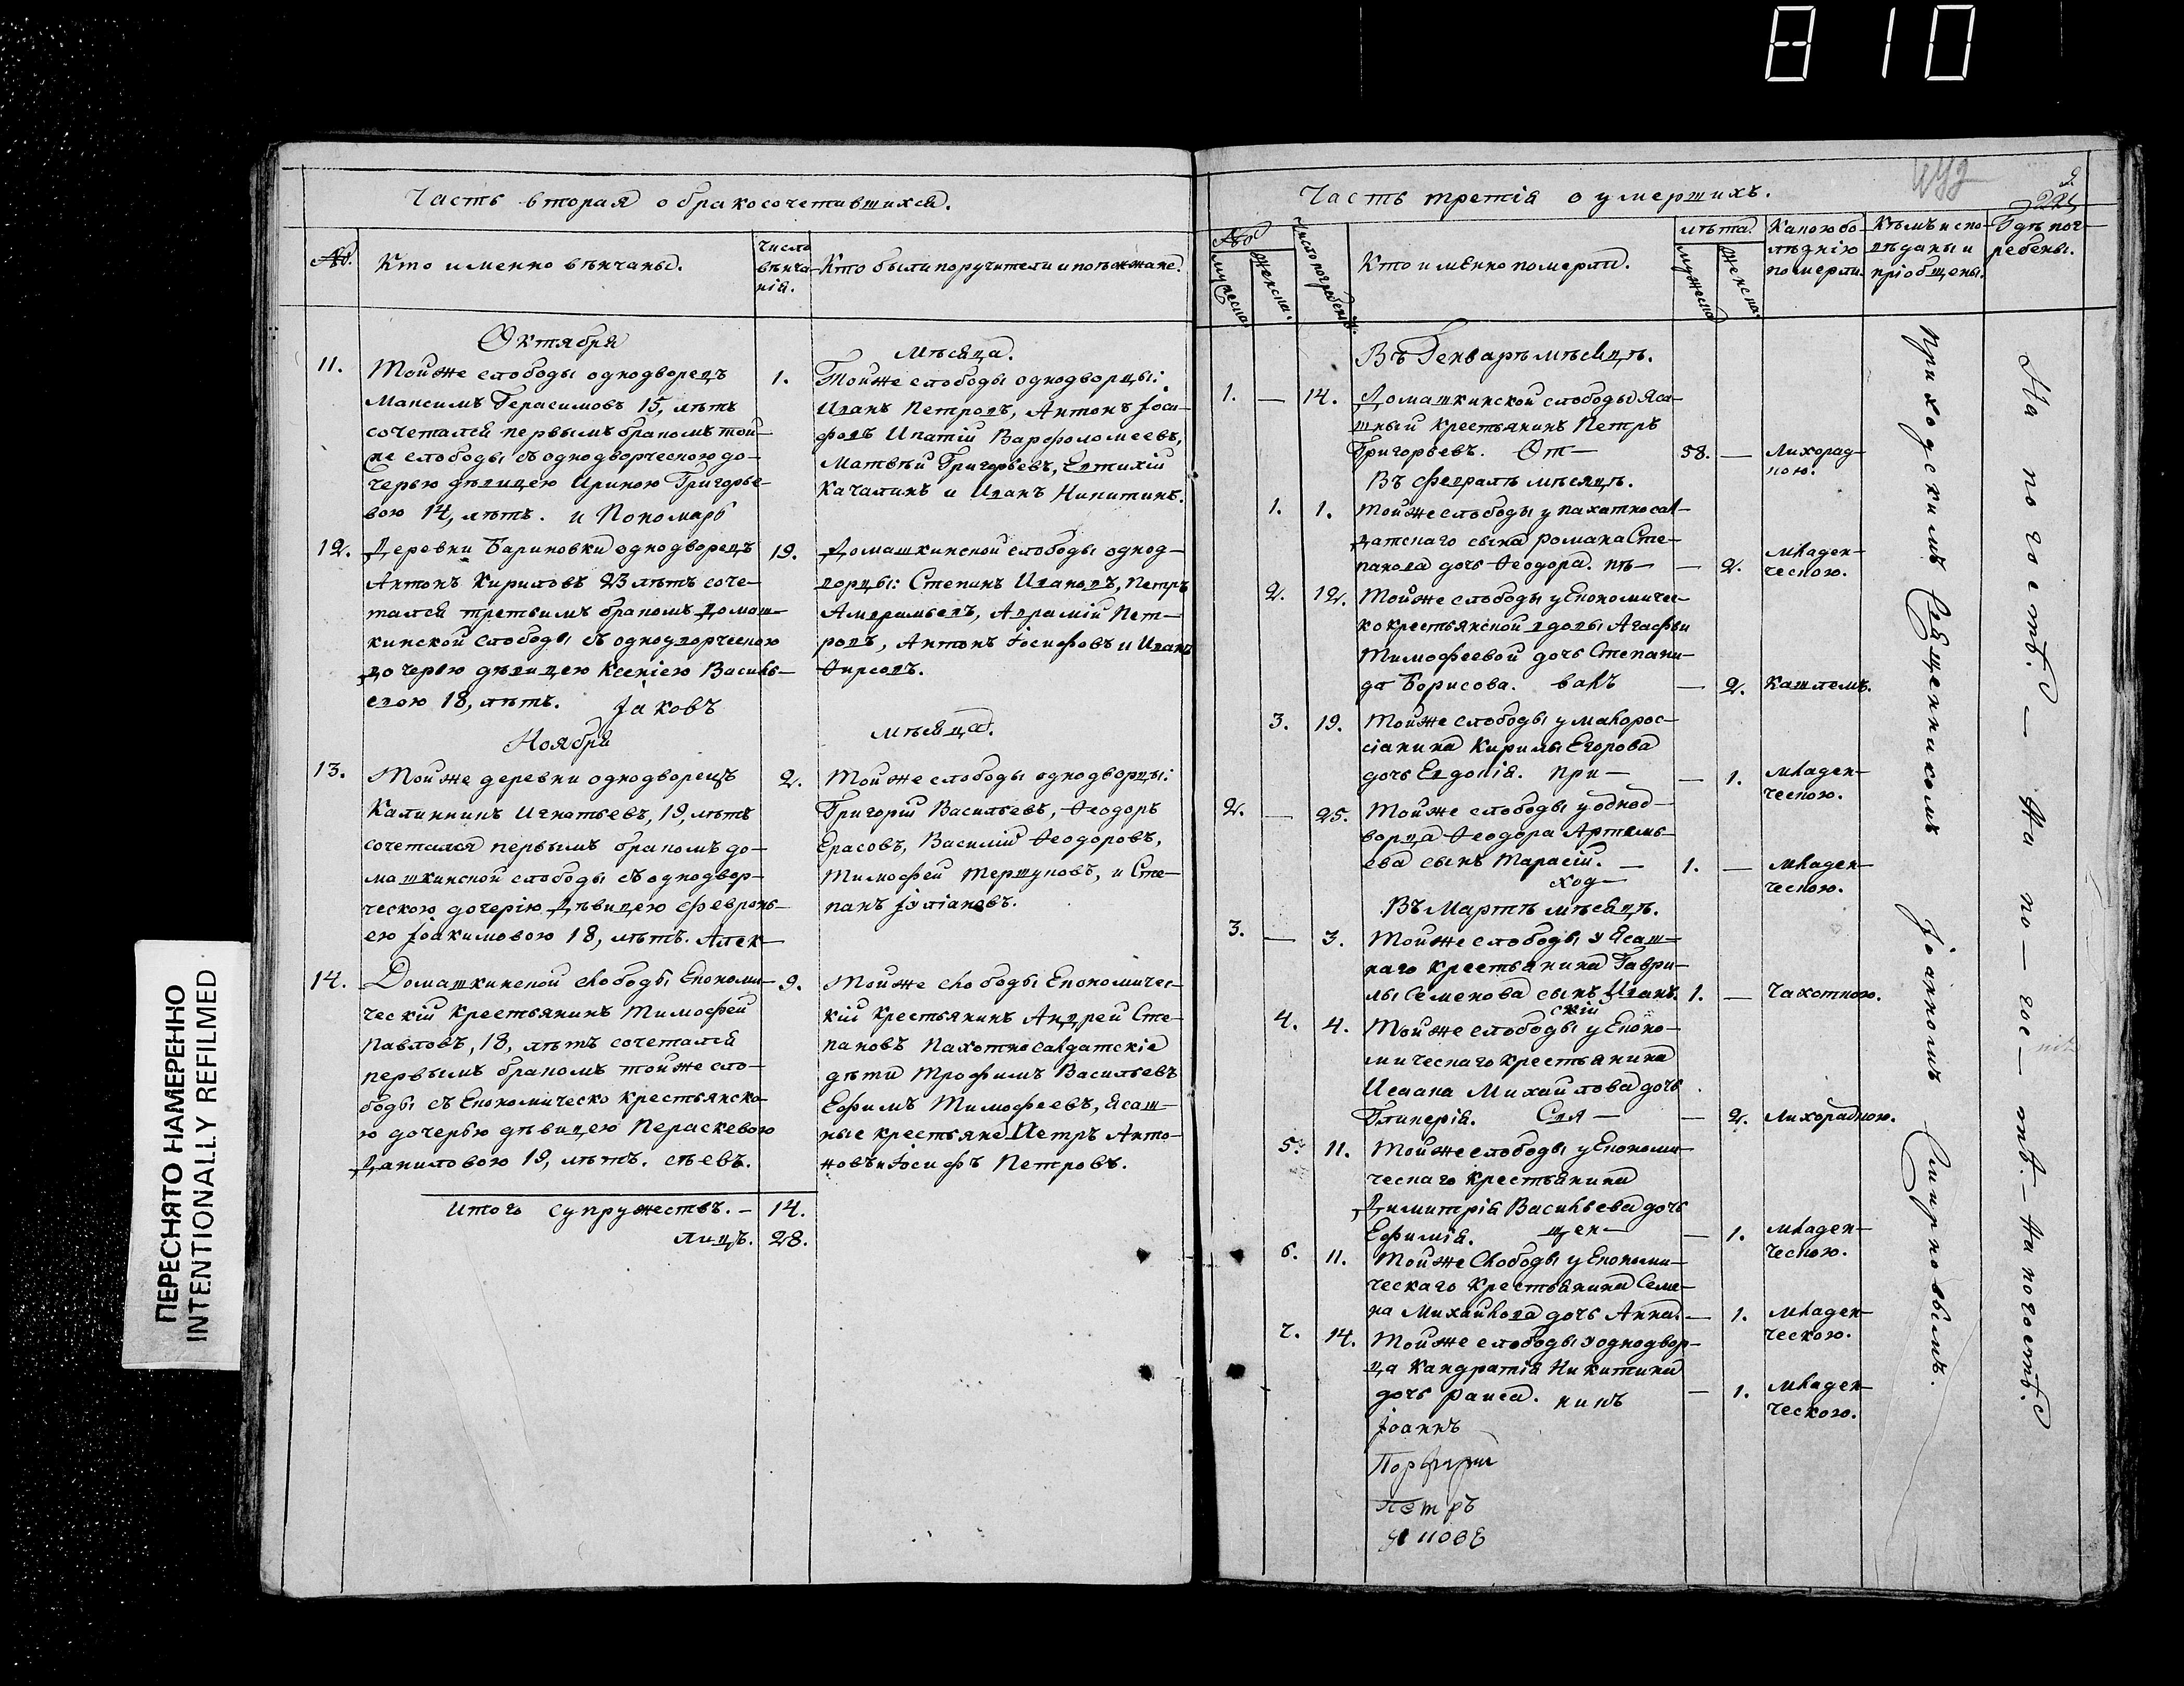 810
ПЕРЕСНЯТО НАМЕРЕННО
INTENTIONALLY REFILMED
Часть вторая о бракосочетавшихся.
№.
Кто именно вѣнчаны.
Число
вѣнча-
нія.
Кто были поручители и поѣзжане.
Октября
мѣсяца.
11.
Тойже слободы однодворецъ
Максимъ Герасимовъ 15, лѣтъ
сочетался первымъ бракомъ той-
же слободы съ однодворческою до-
черью дѣвицею Ириною Григорье-
вою 14, лѣтъ. и Пономарь
1.
Тойже слободы однодворцы:
Иванъ Петровъ, Антонъ Јоси-
фовъ Ипатій Варфоломеевъ,
Матвѣй Григорьевъ, Евтихій
Качалинъ и Иванъ Никитинъ.
12.
Деревни Бариновки однодворецъ
Антонъ Кириловъ 23 лѣтъ соче-
тался третьимъ бракомъ Домаш-
кинской слободы съ однодворческою
дочерью дѣвицею Ксеніею Василь-
евою 18, лѣтъ. Јаковъ
19.
Домашкинской слободы однод-
ворцы: Степанъ Ивановъ, Петръ
Аврамій Пет-
ровъ, Антонъ Іосифовъ и Иванъ
Ѳирсовъ.
Ноября
мѣсяца.
13.
Тойже деревни однодворецъ
Калинникъ Игнатьевъ, 19, лѣтъ
сочетался первымъ бракомъ до-
машкинской слободы съ однодвор-
ческою дочерію Дѣвицею Февронь-
ею Јоакимовою 18, лѣтъ. Алек-
2.
Тойже слободы однодворцы:
Григорій Васильевъ, Ѳеодоръ
Ерасовъ, Василій Ѳеодоровъ,
Тимофей Тершуковъ, и Сте-
панъ Јуліановъ.
14.
Домашкинской слободы Економи-
ческій крестьянинъ Тимофей
Павловъ, 18, лѣтъ сочетался
первымъ бракомъ тойже сло-
боды съ Економическо крестьянско-
ю дочерью дѣвицею Пераскевою
Даниловою 19, лѣтъ. сѣевъ.
9.
Тойже слободы Економичес-
кій крестьянинъ Андрей Сте-
пановъ Пахотносалдатскіе
дѣти Трофимъ Васильевъ
Ефимъ Тимофеевъ, Ясаш-
ные крестьяне Петръ Анто-
новъ и Іосифъ Петровъ.
Итого супружествъ. - 14.
лицъ. 28.
Часть третія о умершихъ.
№
мужеска.
женска.
Число погребенія.
Кто именно померли.
лѣта.
мужеска
женска.
Какою бо-
лѣзнію
померли.
Кѣмъ испо-
вѣданы и
пріобщены.
Гдѣ пог-
ребены.
Въ Генварѣ мѣсяцѣ.
1. — 14.
Домашкинской слободы Яса-
шный крестьянинъ Петръ
Григорьевъ. От- 58. — Лихорад-
кою.
Въ Февралѣ мѣсяцѣ.
1. 1.
Тойже слободы у пахатносал-
датскаго сына романа Сте-
панова дочь Ѳеодора. пѣ- — 2. Младен-
ческою.
2. 12.
Тойже слободы у Економичес-
ко крестьянской вдовы Агафьи
Тимофеевой дочь Степани-
да Борисова. валъ — 2. Кашлемъ.
3. 19.
Тойже слободы у малорос-
сіанина Кирилы Егорова
дочь Евдокія. при- — 1. Младен-
ческою.
2. — 25.
Тойже слободы у однод-
ворца Ѳеодора Артемь-
ева сынъ Тарасій. — 1. — Младен-
ческою.
ход-
Въ Мартѣ мѣсяцѣ.
3. — 3.
Тойже слободы у Ясаш-
наго крестьянина Гаври-
лы Семенова сынъ Иванъ. 1. — Чахоткою.
скій
4. 4.
Тойже слободы у Еконо-
мическаго крестьянина
Исаака Михайлова дочь
Гликерія. Свя- — 2. Лихорадкою.
5. 11.
Тойже слободы у Економи-
ческаго крестьянина
Димитрія Васильева дочь
Ефимія. щен- — 1. Младен-
ческою.
6. 11.
Тойже Слободы у Економи-
ческаго крестьянина Семе-
на Михайлова дочь Анна. — 1. Младен-
ческою.
7. 14.
Тойже слободы у однодвор-
ца Кандратія Никитина
дочь раиса. никъ — 1. Младен-
ческою.
Јоаннъ
Порфирій
Петръ
Приходскимъ Священникомъ Јоанномъ Смирновымъ.
На погостѣ. — На по-гос-тѣ. — На погостѣ.